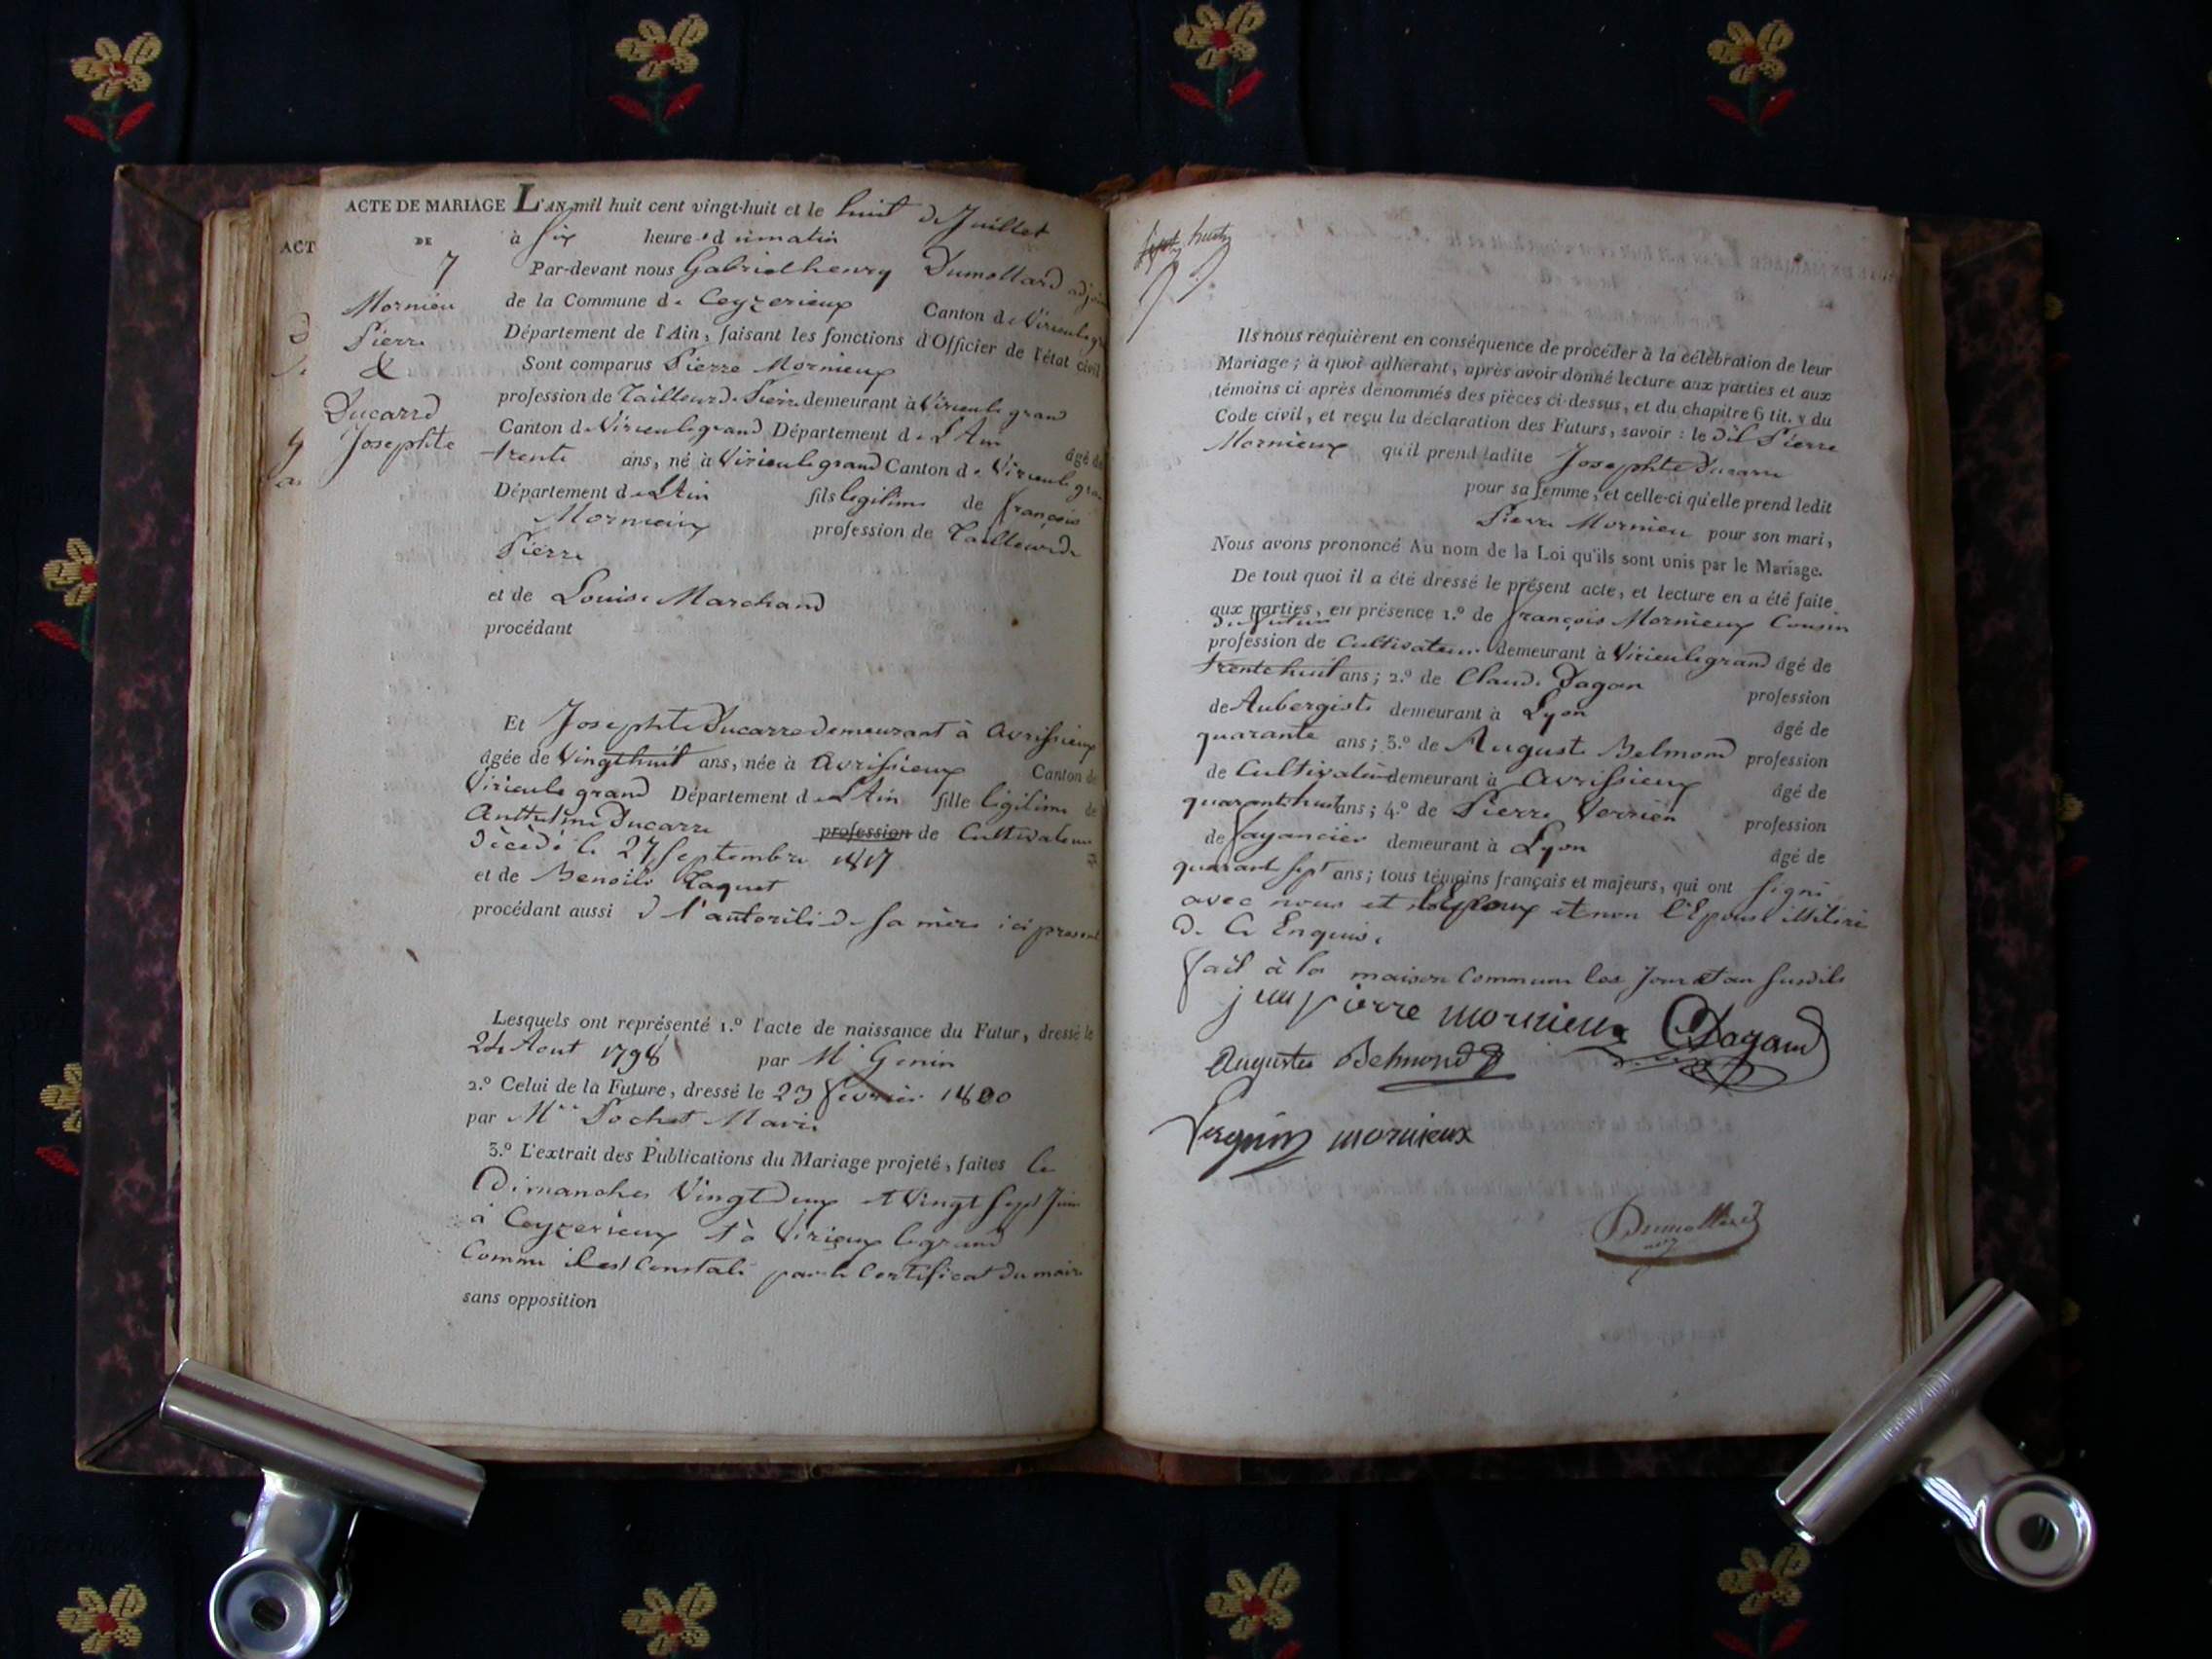 ACTE DE MARIAGE L'AN mil huit cent vingt-huit et le huit de Juillet
ACT
DE
à six heures du matin
7
Par-devant nous Gabriel henry Dumollard adjoi
Mornieu
de la Commune de Ceyzerieux Canton de Virieu le gr
Pierre
Département de l'Ain, faisant les fonctions d'Officier de l'état civil
&
Sont comparus Pierre Mornieux
Ducarre
profession de Tailleur de Pierre demeurant à Virieu le grand
Josephte
Canton de Virieu le grand Département de L'Ain âgé de
trente ans, né à Virieu le grand Canton de Virieu le gra
Département de L'Ain fils legitime de françois
Mornieux profession de Tailleur de
Pierre
et de Louise Marchand
procédant
Et Josephte Ducarre demeurant à Avrissieux
âgée de Vingt huit ans, née à Avrissieux Canton de
Virieu le grand Département de L'Ain fille légitime de
Anthelme Ducarre profession de Cultivateur
décédé le 27 Septembre 1817
et de Benoite Taquet
procédant aussi de l'autorité de sa mère ici present
Lesquels ont représenté 1.º l'acte de naissance du Futur, dressé le
24 Aout 1798 par Mr Genin
2.º Celui de la Future, dressé le 23 fevrier 1800
par Mr Pochet Maire
3.º L'extrait des Publications du Mariage projeté, faites le
Dimanches Vingt deux et Vingt sept Juin
à Ceyzerieux et à Virieux le grand
Comme il est Constaté par le Certificat du maire
sans opposition
sept huit
Ils nous requièrent en conséquence de procéder à la célébration de leur
Mariage ; à quoi adhérant, après avoir donné lecture aux parties et aux
témoins ci après dénommés des pièces ci-dessus, et du chapitre 6 tit. v du
Code civil, et reçu la déclaration des Futurs, savoir : le dit Pierre
Mornieux qu'il prend ladite Josephte Ducarre
pour sa femme, et celle-ci qu'elle prend ledit
Pierre Mornieu pour son mari,
Nous avons prononcé Au nom de la Loi qu'ils sont unis par le Mariage.
De tout quoi il a été dressé le présent acte, et lecture en a été faite
aux parties, en présence 1.º de françois Mornieux Cousin
du futur
profession de Cultivateur demeurant à Virieu le grand âgé de
trente huit ans ; 2.º de Claude Dagan profession
de Aubergiste demeurant à Lyon âgé de
quarante ans ; 3.º de Auguste Belmond profession
de Cultivateur demeurant à Avrissieux âgé de
quarante huit ans ; 4.º de Pierre profession
de fayancier demeurant à Lyon âgé de
quarant sept ans ; tous témoins français et majeurs, qui ont signé
avec nous et l'Epoux et non l'Epouse illitéré
de ce Enquis.
fait à la maison Commune les Jour et an susdits
jean pierre mornieux CDagand
Augustes Belmond
mornieux
Dumollard